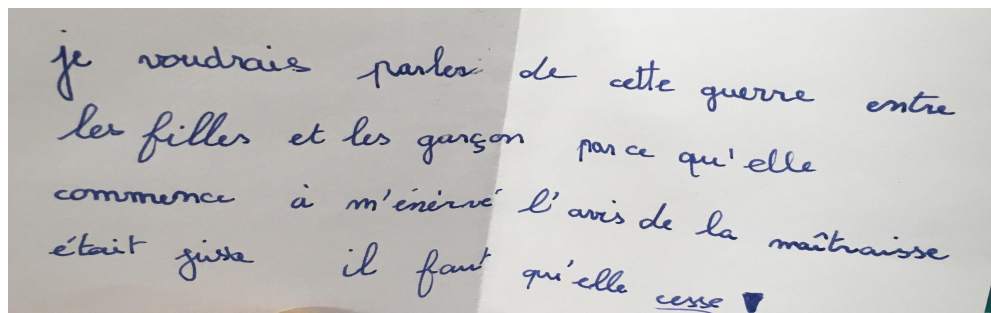 je voudrais parler de cette guerre entre
les filles et les garçon parce qu'elle
commence à m'énérvé l'avis de la maîtraisse
était jisse il faut qu'elle cesse